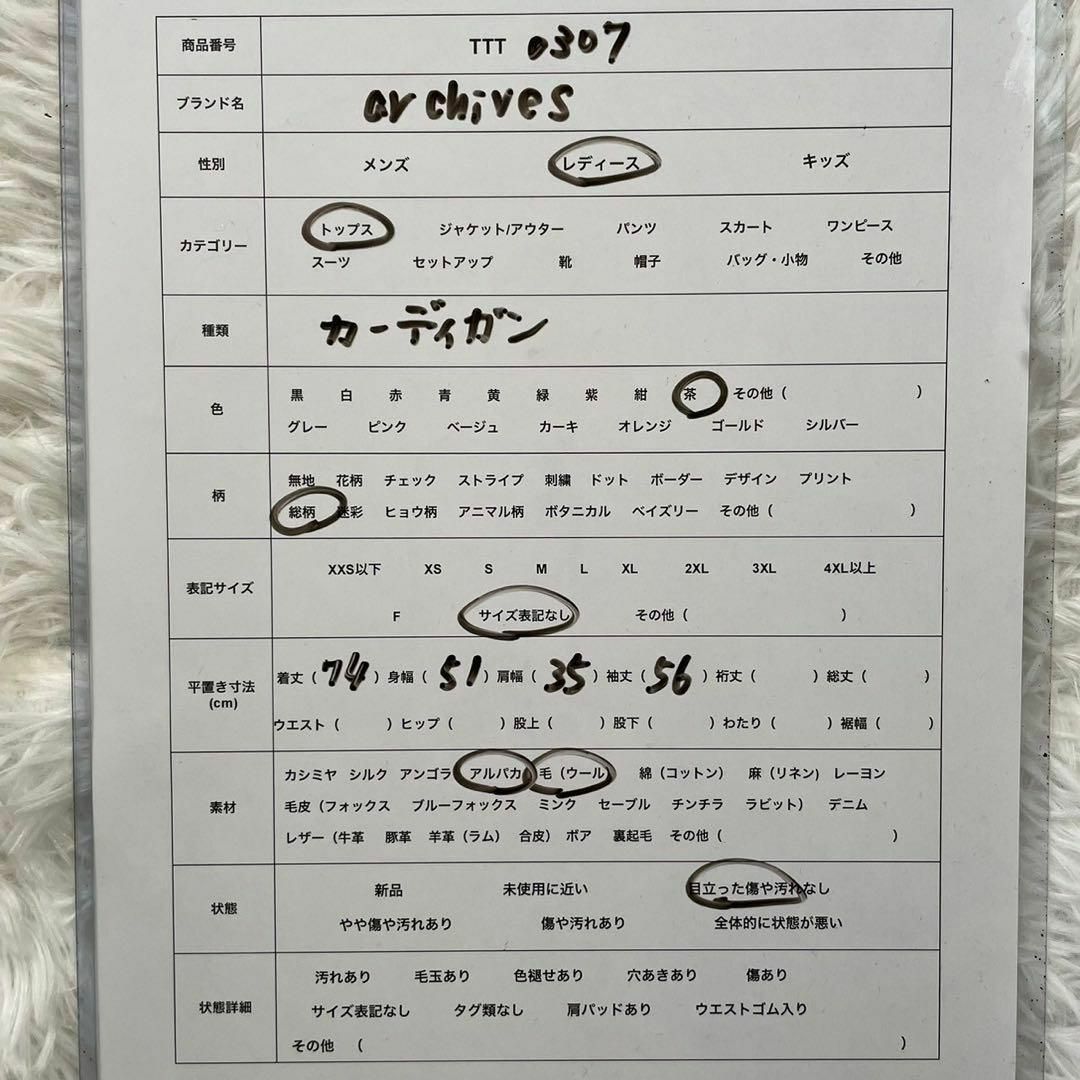 商品番号 TTT 0307
ブランド名 archives
性別 メンズ レディース キッズ
カテゴリー トップス ジャケット/アウター パンツ スカート ワンピース
スーツ セットアップ 靴 帽子 バッグ・小物 その他
種類 カーディガン
色 黒 白 赤 青 黄 緑 紫 紺 茶 その他（ ）
グレー ピンク ベージュ カーキ オレンジ ゴールド シルバー
柄 無地 花柄 チェック ストライプ 刺繍 ドット ボーダー デザイン プリント
総柄 迷彩 ヒョウ柄 アニマル柄 ボタニカル ベイズリー その他（ ）
表記サイズ XXS以下 XS S M L XL 2XL 3XL 4XL以上
F サイズ表記なし その他（ ）
平置き寸法 (cm) 着丈（ 74 ）身幅（ 51 ）肩幅（ 35 ）袖丈（ 56 ）裄丈（ ）総丈（ ）
ウエスト（ ）ヒップ（ ）股上（ ）股下（ ）わたり（ ）裾幅（ ）
素材 カシミヤ シルク アンゴラ アルパカ 毛（ウール） 綿（コットン） 麻（リネン） レーヨン
毛皮（フォックス ブルーフォックス ミンク セーブル チンチラ ラビット） デニム
レザー（牛革 豚革 羊革（ラム） 合皮） ボア 裏起毛 その他（ ）
状態 新品 未使用に近い 目立った傷や汚れなし
やや傷や汚れあり 傷や汚れあり 全体的に状態が悪い
状態詳細 汚れあり 毛玉あり 色褪せあり 穴あきあり 傷あり
サイズ表記なし タグ類なし 肩パッドあり ウエストゴム入り
その他 （ ）